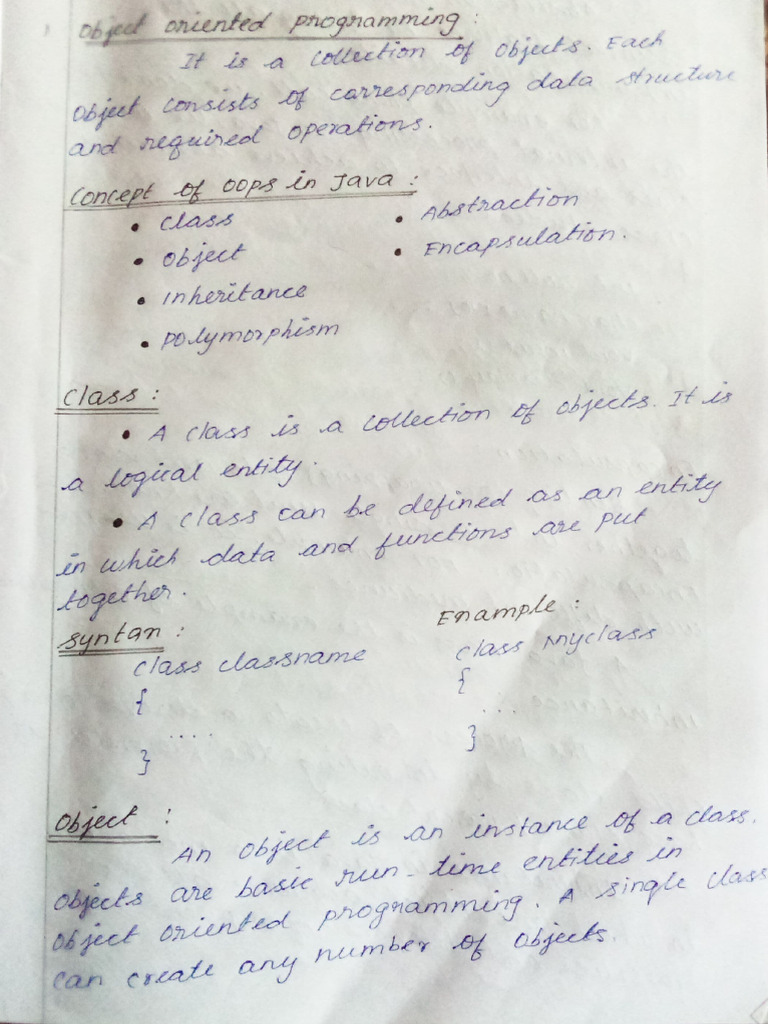 Object oriented programming :
It is a collection of objects. Each
object consists of corresponding data structure
and required operations.
Concept of OOPS in Java :
• Class
• Abstraction
• Object
• Encapsulation.
• Inheritance
• Polymorphism
Class :
• A class is a collection of objects. It is
a logical entity.
• A class can be defined as an entity
in which data and functions are put
together.
Syntax :
Example :
class classname
class Myclass
{
{
....
...
}
}
Object :
An object is an instance of a class.
Objects are basic run-time entities in
object oriented programming. A single class
can create any number of objects.